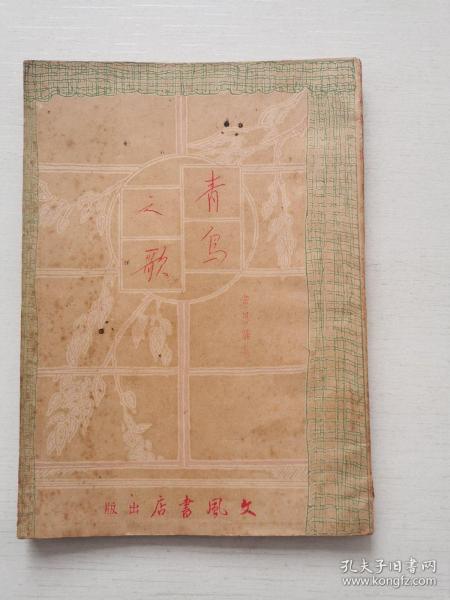 青鸟
之歌
文風書店出版
孔夫子旧书网
www.kongfz.com